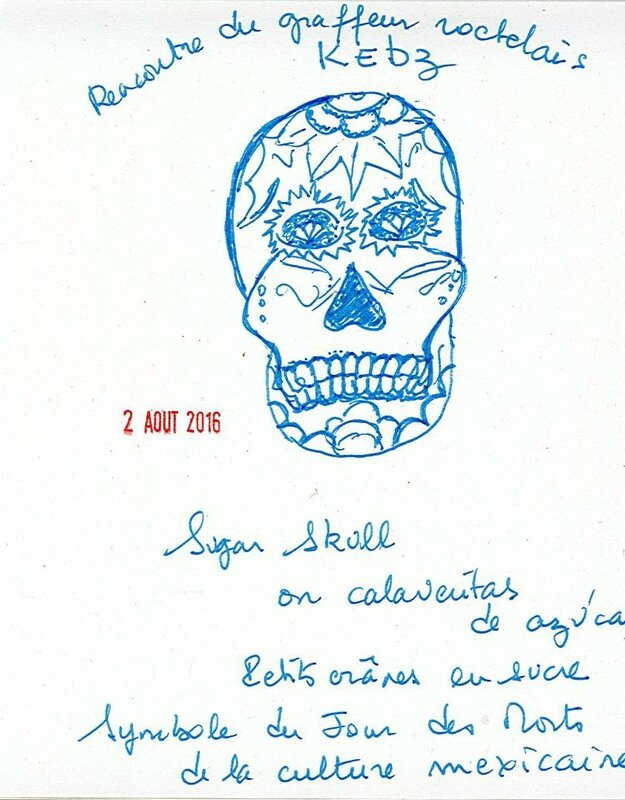 Rencontre du graffeur rochelais
KEbz
2 AOUT 2016
Sugar Skull
ou calaveritas
de azúca
Petits crânes en sucre
Symbole du Jour des Morts
de la culture mexicaine